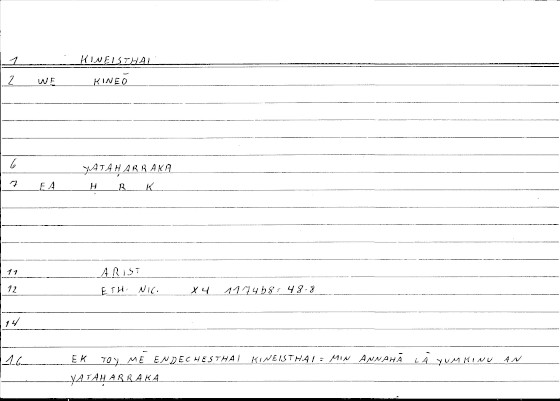 1 KINEISTHAI
2 WE KINEŌ
6 YATAḤARRAKA
7 EA Ḥ R K
11 ARIST
12 ETH. NIC. X4 1174b8: 48.8
14
16 EK TOY MĒ ENDECHESTHAI KINEISTHAI = MIN ANNAHĀ LĀ YUMKINU AN
YATAḤARRAKA